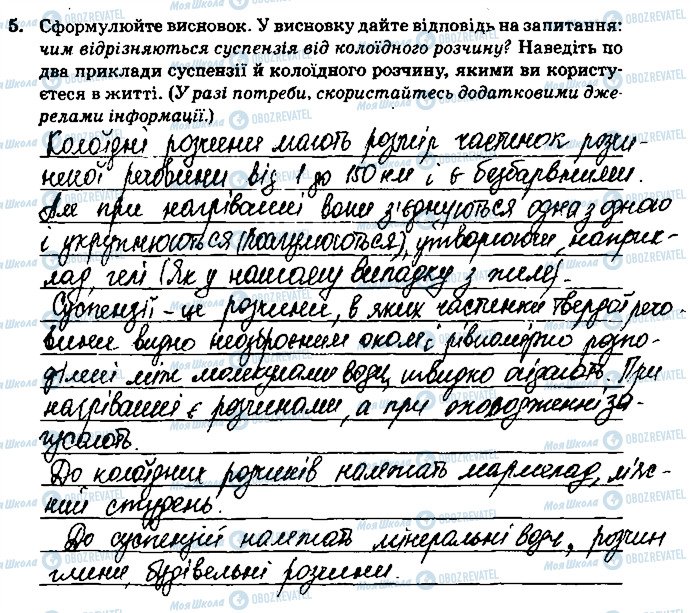 5. Сформулюйте висновок. У висновку дайте відповідь на запитання:
чим відрізняються суспензія від колоїдного розчину? Наведіть по
два приклади суспензії й колоїдного розчину, якими ви користу-
єтеся в житті. (У разі потреби, скористайтесь додатковими дже-
релами інформації.)
Колоїдні розчини мають розмір частинок розчи-
неної речовини від 1 до 150 нм і є безбарвними.
Але при нагріванні вони з'єднуються одна з одною
і укрупнюються (коагулюються), утворюючи, наприк-
лад, гелі (Як у нашому випадку з желе).
Суспензії – це розчини, в яких частинки твердої речо-
вини видно неозброєним оком і рівномірно розпо-
ділені між молекулами води, швидко осідають. При
нагріванні є розчинами, а при охолодженні за-
гусають.
До колоїдних розчинів належать мармелад, м'яс-
ний студень.
До суспензій належать мінеральні води, розчин
глини, будівельні розчини.
Моя Школа OBOZREVATEL